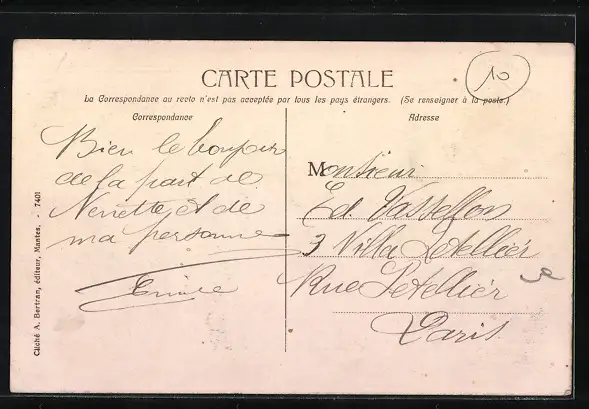 CARTE POSTALE
10
La Correspondance au recto n'est pas acceptée par tous les pays étrangers. (Se renseigner à la poste.)
Correspondance
Adresse
Bien le bonjour
de la part de
Nenette, et de
ma personne
Monsieur
Ed. Vasselon
3 Villa Letellier
Rue Letellier
Paris
Cliché A. Bertran, éditeur, Mantes. - 7401